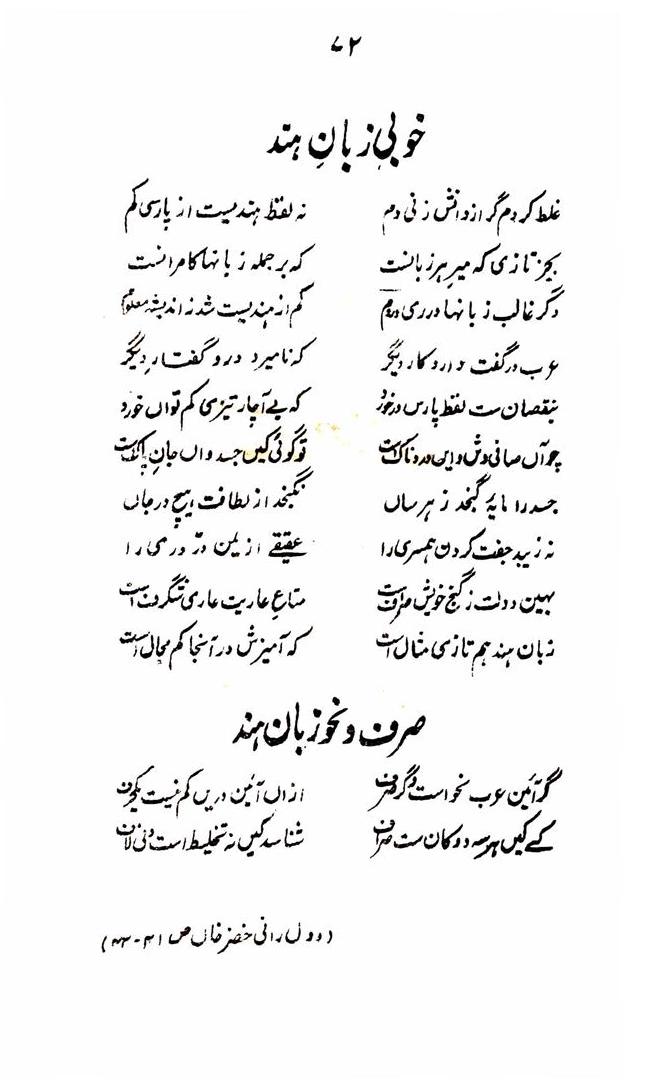 ۷۲
خوبیِ زبانِ ہند
غلط کردم گر از دانش زنی دم نہ لفظ ہندیست از پارسی کم
بجز تازی کہ میرِ ہر زبانست کہ بر جملہ زبانہا کامرانست
دگر غالب زبانہا در ری و روم کم از ہندیست شد ز اندیشہ معلوم
عرب در گفت دارد کار دیگر کہ نامیزد درو گفتار دیگر
بنقصان ست لفظ پارس در خورد کہ بے آچار تیزی کم تواں خورد
چو آں صافی وش و ایں دردناک است تو گوئی کیں جسد واں جانِ پاک است
جسد را مایۂ گنجد ز ہر ساں نگنجد از لطافت ہیچ در جاں
نہ زیبد جفت کردن ہمسری را عقیقے از یمن درِّ دری را
بہین دولت ز گنج خویش صرف است متاعِ عاریت عاری شگرف است
زبان ہند ہم تازی مثال است کہ آمیزش در آنجا کم مجال است
صرف و نحو زبان ہند
گر آئین عرب نحو است و گر صرف ازاں آئین دریں کم نیست یکحرف
کسے کیں ہر سہ دوکان ست صراف شناسد کیں نہ تخلیط است و نی لاف
(دول رانی خضر خاں ص ۴۱-۴۲)